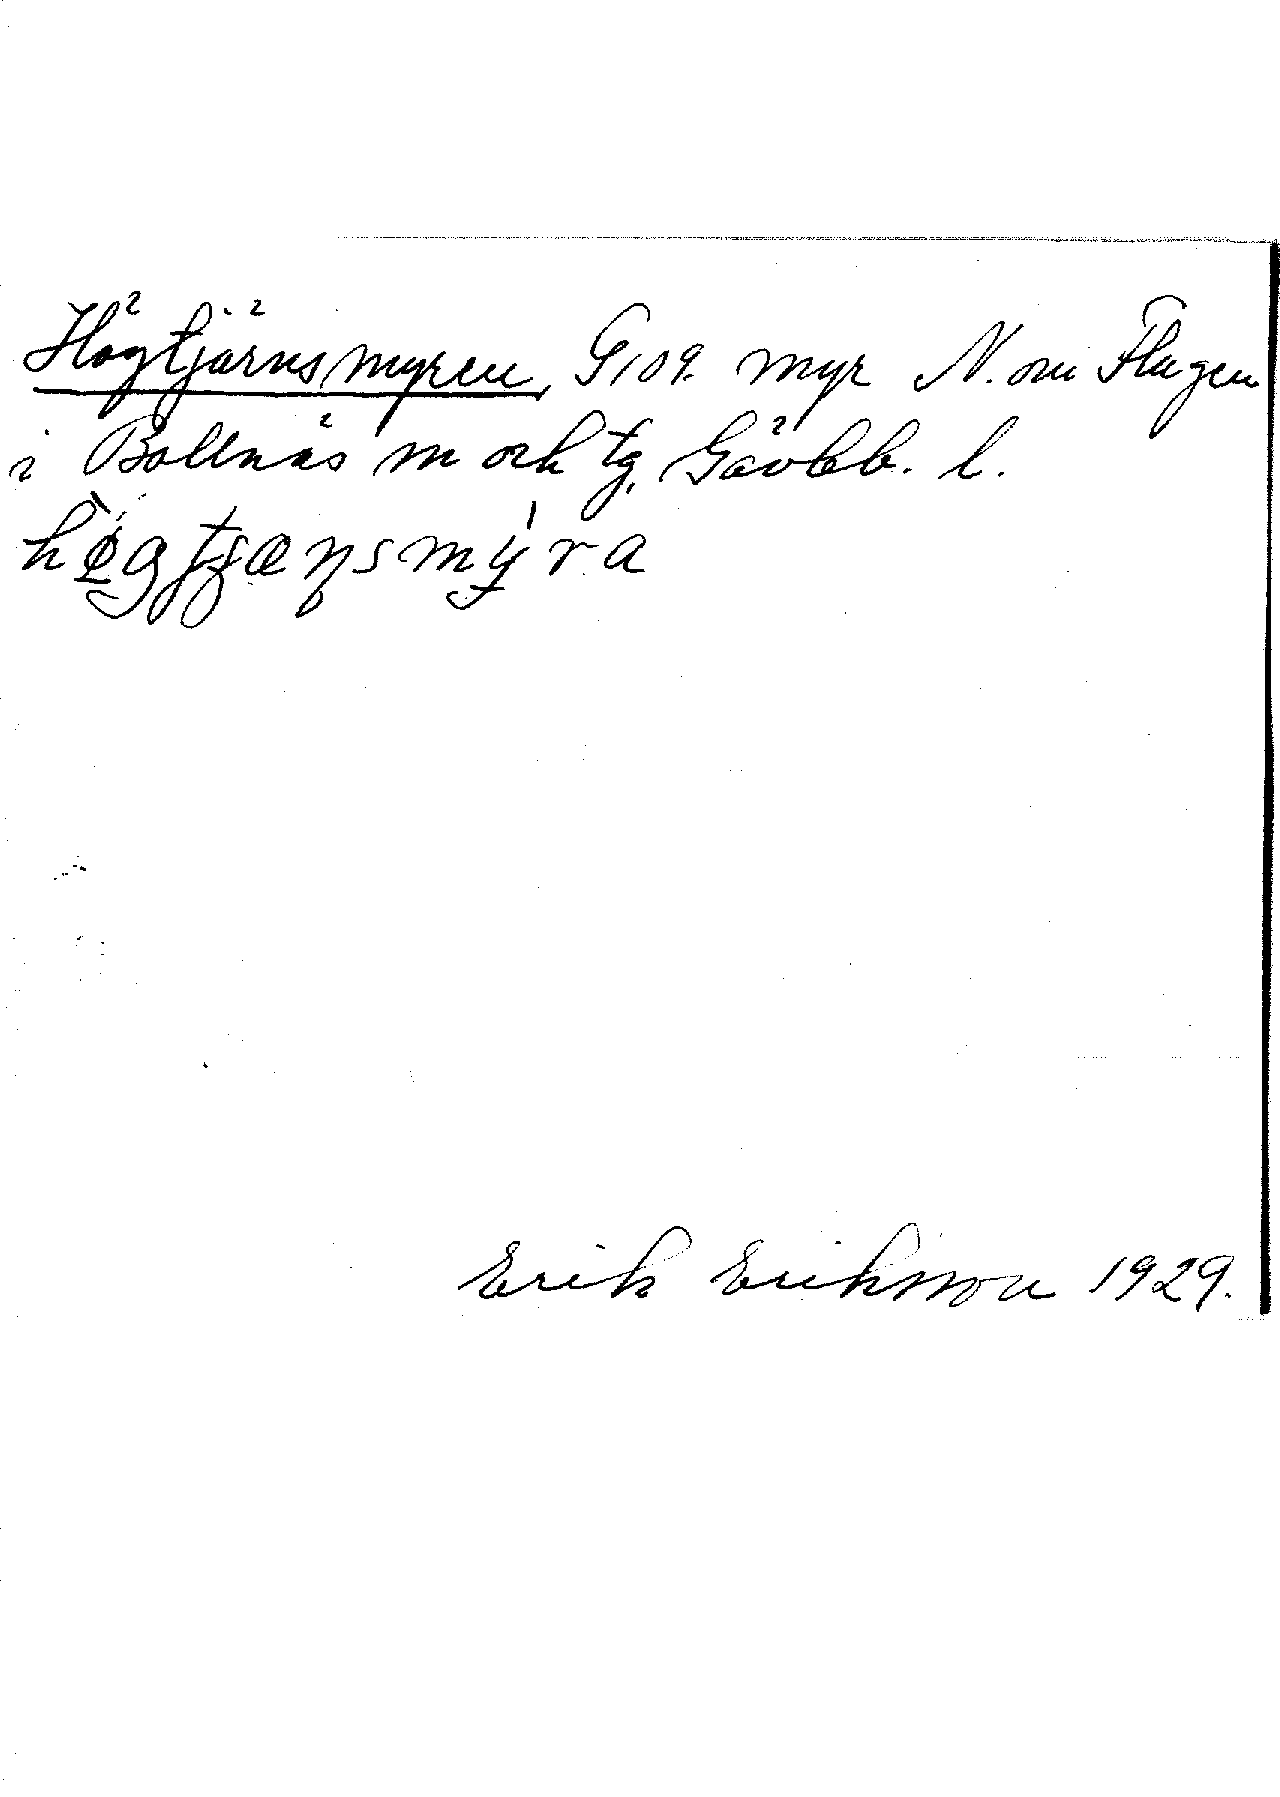 Högtjärnsmyren, G109. myr N. om Flugen
i Bollnäs m och tg, Gävleb. l.
høgtjæṇsmýra
Erik Eriksson 1929.